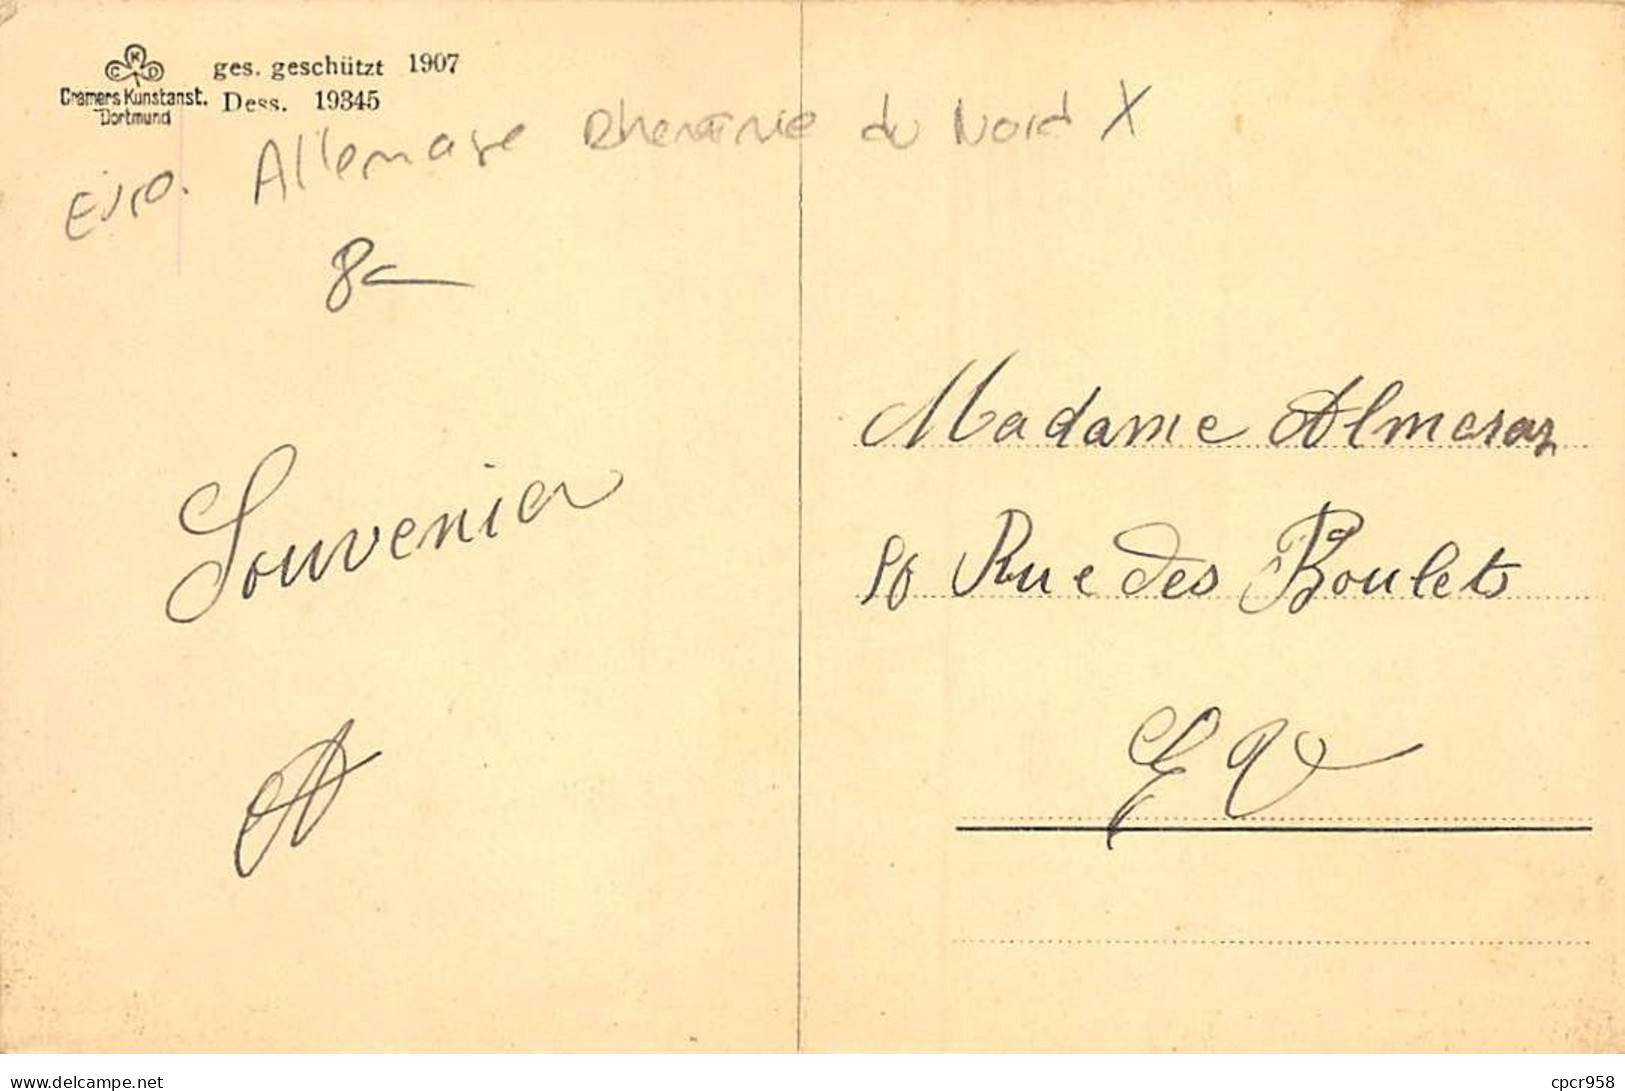 C K D
Cramers Kunstanst.
Dortmund
ges. geschützt 1907
Dess. 19345
Euro. Allemagne Rhénanie du Nord X
8
Souvenir
Madame
Rue des Boulets
EV
www.delcampe.net
cpcr958